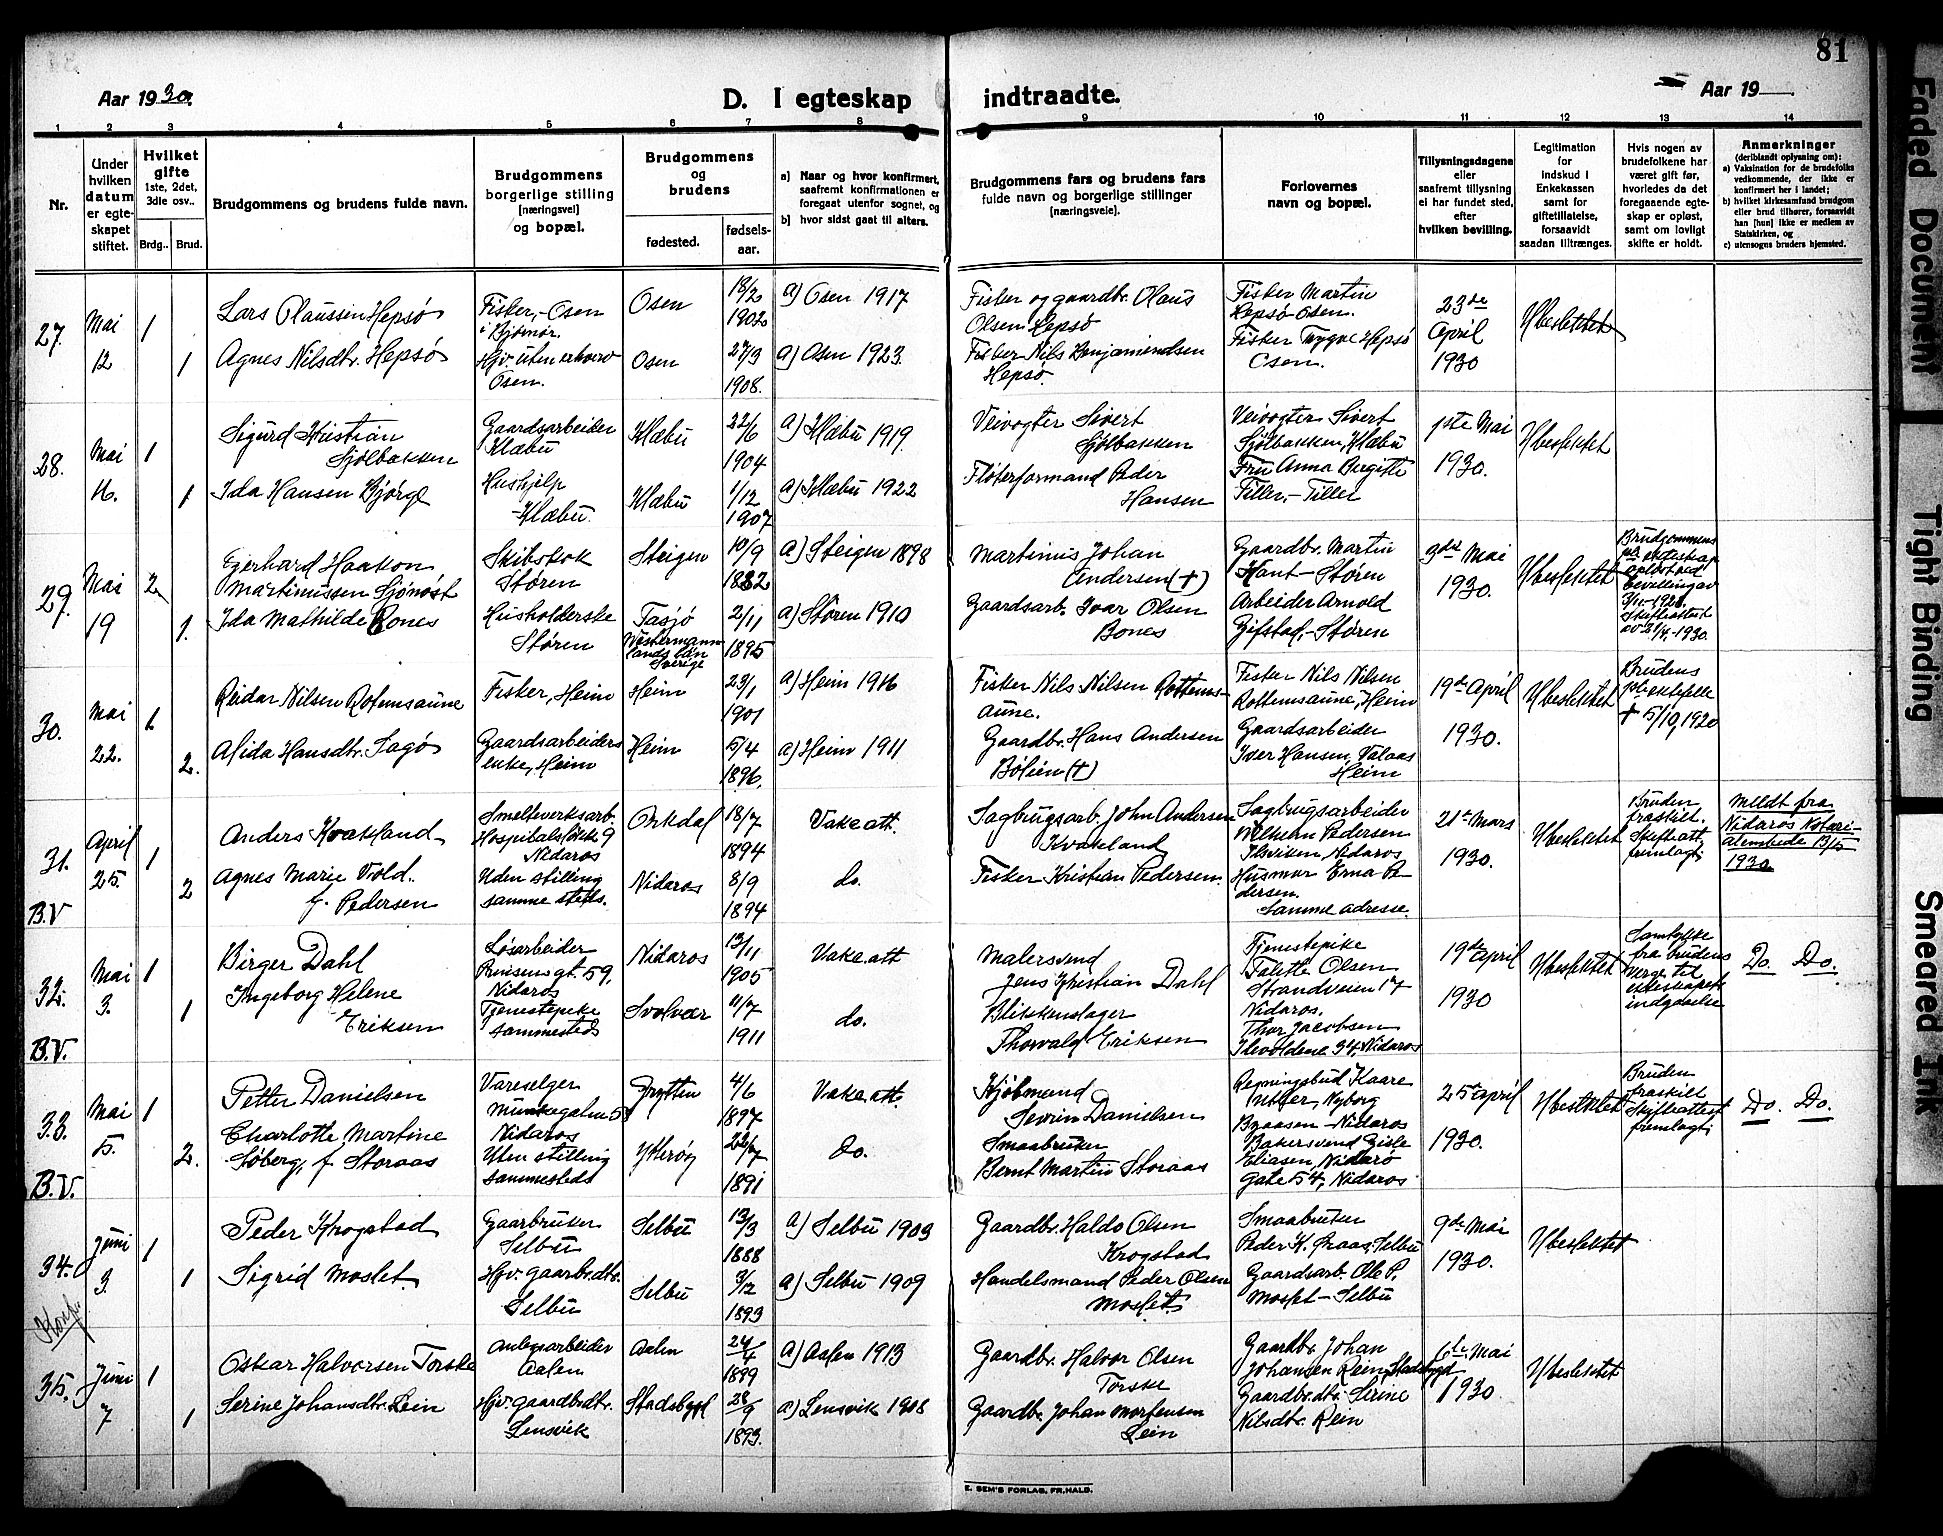 81
Aar 1930.
D. I egteskap indtraadte.
Aar 19
1 2 3 4 5 6 7 8 9 10 11 12 13 14
Nr.
Under hvilken datum er egteskapet stiftet.
Hvilket gifte
1ste, 2det, 3dle osv..
Brdg.. Brud.
Brudgommens og brudens fulde navn.
Brudgommens borgerlige stilling
[næringsvei]
og bopæl.
Brudgommens og brudens
fødested.
fødsels-aar.
a) Naar og hvor konfirmert, saafremt konfirmationen er foregaat utenfor sognet, og
b) hvor sidst gaat til alters.
Brudgommens fars og brudens fars
fulde navn og borgerlige stillinger
(næringsveie).
Forlovernes
navn og bopæl.
Tillysningsdagene
eller
saafremt tillysning
ei har fundet sted,
efter
hvilken bevilling.
Legitimation
for
indskud i
Enkekassen
samt for
giftetillatelse,
forsaavidt
saadan tiltrænges.
Hvis nogen av
brudefolkene har
været gift før,
hvorledes da det
foregaaende egte-
skap er opløst,
samt om lovligt
skifte er holdt.
Anmerkninger
(deriblandt oplysning om):
a) Vaksination for de brudefolks
vedkommende, der ikke er
konfirmert her i landet;
b) hvilket kirkesamfund brudgom
eller brud tilhører, forsaavidt
han [hun] ikke er medlem av
Statskirken, og
c) utensogns bruders hjemsted.
27. Mai 12
1
Lars Olaussen Hepsø
Fisker, - Osen i Bjørnør.
Osen
18/2 1902
a) Osen 1917
Fisker og gaardbr. Olaus Olsen Hepsø
Fisker Martin Hepsø - Osen.
23de April 1930
Ubeslektet
1
Agnes Nilsdtr. Hepsø
Hjv. uten erhverv Osen.
Osen
27/3 1908.
a) Osen 1923.
Fisker Nils Benjaminsen Hepsø.
Fisker Trygve Hepsø Osen.
28. Mai 16.
1
Sigurd Kristian Sjølbakken
Gaardsarbeider Klæbu
Klæbu
22/6 1904
a) Klæbu 1919.
Veivogter Sivert Sjølbakken
Veivogter Sivert Sjølbakken, Klæbu
1ste Mai 1930.
Ubeslektet
1
Ida Hansen Bjørge
Hushjelp - Klæbu.
Klæbu
1/12 1907
a) Klæbu 1922
Fløterformand Peder Hansen
Fru Anna Birgitte Tiller, - Tiller
29. Mai 19
2
Egerhard Haakon Martinussen Sjønøst
Skibskok Støren
Steigen
10/9 1882
a) Steigen 1898
Martinus Johan Andersen (+)
Gaardbr. Martin Hant - Støren
3dje Mai 1930.
Ubeslektet
Brudgommens ekteskap opløst ved bevilling av 7/11-1928. Skifteattest av 21/4-1930.
1.
Ida Mathilde Bones
Husholderske Støren
Tåsjø Westermannlands län Sverige
2/11 1895
a) Støren 1910
Gaardsarb. Ivar Olsen Bones
Arbeider Arnold Gifstad, - Støren
30. Mai 22.
1
Reidar Nilsen Rotemsaune
Fisker, Heim
Heim
23/1 1901
a) Heim 1916
Fisker Nils Nilsen Rottemsaune.
Fisker Nils Nilsen Rottemsaune, Heim
19de April 1930.
Ubeslektet
Brudens ektefelle + 5/10, 1920
2.
Alida Hansdtr. Sagø
Gaardsarbeiders enke, Heim
Heim
5/4 1896.
a) Heim 1911
Gaardbr. Hans Andersen Bølien (+)
Gaardsarbeider Iver Hansen, Valaas Heim
31. April 25.
B.V
1
Anders Kvakland
Smelteverksarb. Hospitalsløkk. 9 Nidaros
Orkdal
18/7 1894
Vake att.
Sagbrugsarb. John Andersen Kvakland
Sagbrugsarbeider Wilhelm Pedersen Ilsviken, Nidaros
21de Mars 1930.
Ubeslektet
Bruden fraskilt. Skifteatt. fremlagt.
Meldt fra Nidaros Notarialembede 13/5 1930.
2
Agnes Marie Vold. f. Pedersen
Uden stilling samme steds.
Nidaros
8/9 1894
do.
Fisker Kristian Pedersen.
Husmor Erna Pedersen. Samme adresse.
32. Mai 3.
B.V.
1
Birger Dahl
Løsarbeider Prinsensgt. 59, Nidaros
Nidaros
13/11 1905
Vake att
Malersvend Jens Kristian Dahl
Tjenestepike Talette Olsen Strandveien 17 Nidaros.
19de april 1930
Ubeslektet
Samtykke fra brudens verge til ekteskapets indgaaelse
Do. Do.
1
Ingeborg Helene Eriksen
Tjenestepike sammesteds
Svolvær
11/7 1911
do.
Blikkenslager Thorvald Eriksen
Thor Jacobsen Ilevoldene 34, Nidaros
33. Mai 5.
B.V.
1
Petter Danielsen
Vareselger Munkegaten 58 Nidaros
Grytten
4/6 1897
Vake att.
Kjøbmand Sevrin Danielsen
Regningsbud Kaare Nyborg Byaasen - Nidaros
25de april 1930.
Ubeslektet
Bruden fraskilt Skifteattest fremlagt.
Do. Do.
2.
Charlotte Martine Søberg, f. Storaas
Uten stilling sammesteds
Ytterøy
22/7 1891
do.
Smaabruker Bernt Martin Storaas
Bakersvend Gisle Eliasen, Nidarø Gate 54, Nidaros
34. Juni 3.
1
Peder Krogstad
Gaarbruker Selbu
Selbu
13/3 1888
a) Selbu 1903
Gaardbr. Haldo Olsen Krogstad
Smaabruker Peder K. Draas, Selbu
9de Mai 1930.
Ubeslektet
1
Sigrid Moslet.
Hjv. gaarbr.dtr. Selbu
Selbu
3/12 1893
a) Selbu 1909
Handelsmand Peder Olsen Moslet
Gaardsarb. Ole P. Moslet - Selbu
35. Juni 7
1
Oskar Halvorsen Torske
Anlegsarbeider Aalen
Aalen
24/4 1899
a) Aalen 1913
Gaardbr. Halvor Olsen Torske
Gaardbr. Johan Johansen Rein, Stadsbygd
6te Mai 1930.
Ubeslektet
1
Serine Johansdtr. Lein
Hjv. gaardbr.dtr. Lensvik
Stadsbygd
28/9 1893.
a) Lensvik 1908
Gaardbr. Johan Mortensen Lein
Gaardbr.dtr. Serine Nilsdtr. Rein
E. SEM'S FORLAG, FR.HALD.
Faded Document
Tight Binding
Smeared Ink